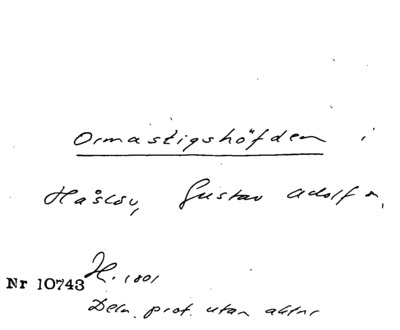 Ormastigshöfden i
Håslöv, Gustav Adolf s.
Nr 10743 H. 1801
Dela. prot. utan aktnr